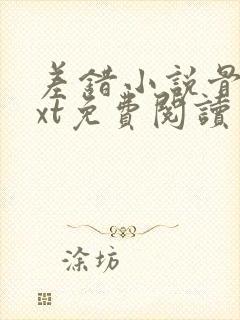 差錯小說骨
xt免費閱讀
涂坊